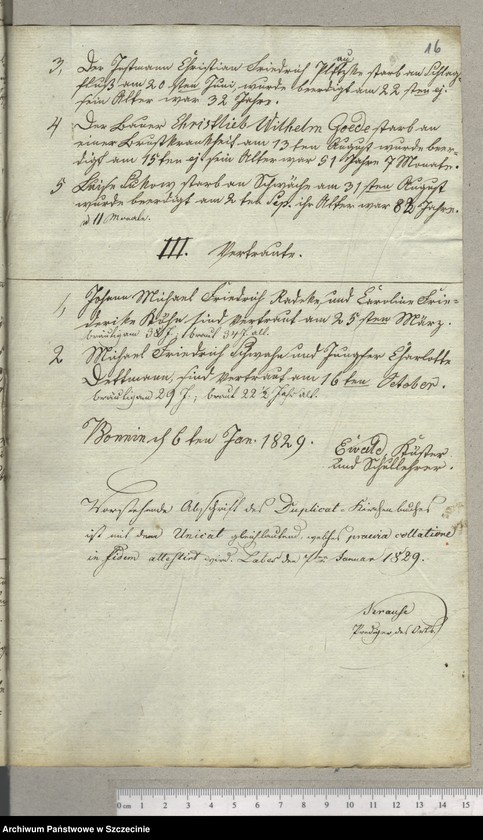 16
3, Der Instmann Christian Friedrich starb an Schlag-
fluß am 20 sten Juni, wurde beerdigt am 22 sten ej.
sein Alter war 32 Jahre.
4 Der Bauer Christlieb Wilhelm Goede starb an
einer Brustkrankheit am 13 ten August wurde beer-
digt am 15 ten ej. sein Alter war 51 Jahre 7 Monate.
5 Luise Lükow starb an Schwäche am 31 sten August
wurde beerdigt am 2 ten Sep. ihr Alter war 82 Jahre.
u 11 Monate.
III. Vertraute.
1, Johann Michael Friedrich Radtke und Caroline Frie-
derike Kuhn, sind vertraut am 25 sten März.
bräutigam 38 J., braut 34 J. alt.
2 Michael Friedrich Schwahn und Jungfer Charlotte
Dettmann, sind vertraut am 16 ten October.
bräutigam 29 J., braut 22 ½ Jahr alt.
Bonnin d 6 ten Jan. 1829.
Ewald, Küster
und Schullehrer.
Vorstehende Abschrift des Duplicat-Kirchenbuches
ist mit dem Unicat gleichlautend, welches praevia collatione
in fidem attestirt wird. Labes den 7ten Januar 1829.
Krause
Prediger des Orts
0 cm 1 2 3 4 5 6 7 8 9 10 11 12 13 14 15
Archiwum Państwowe w Szczecinie